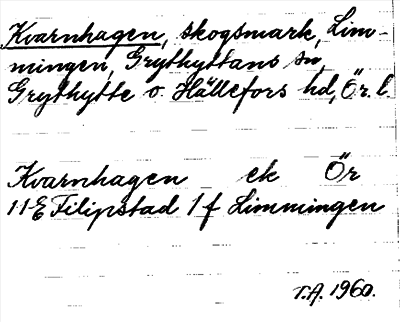 Kvarnhagen, skogsmark, Lim-
mingen, Grythyttans sn,
Grythytte o. Hällefors hd, Ör. l.
Kvarnhagen ek Ör
11E Filipstad 1f Limmingen
T.A. 1960.